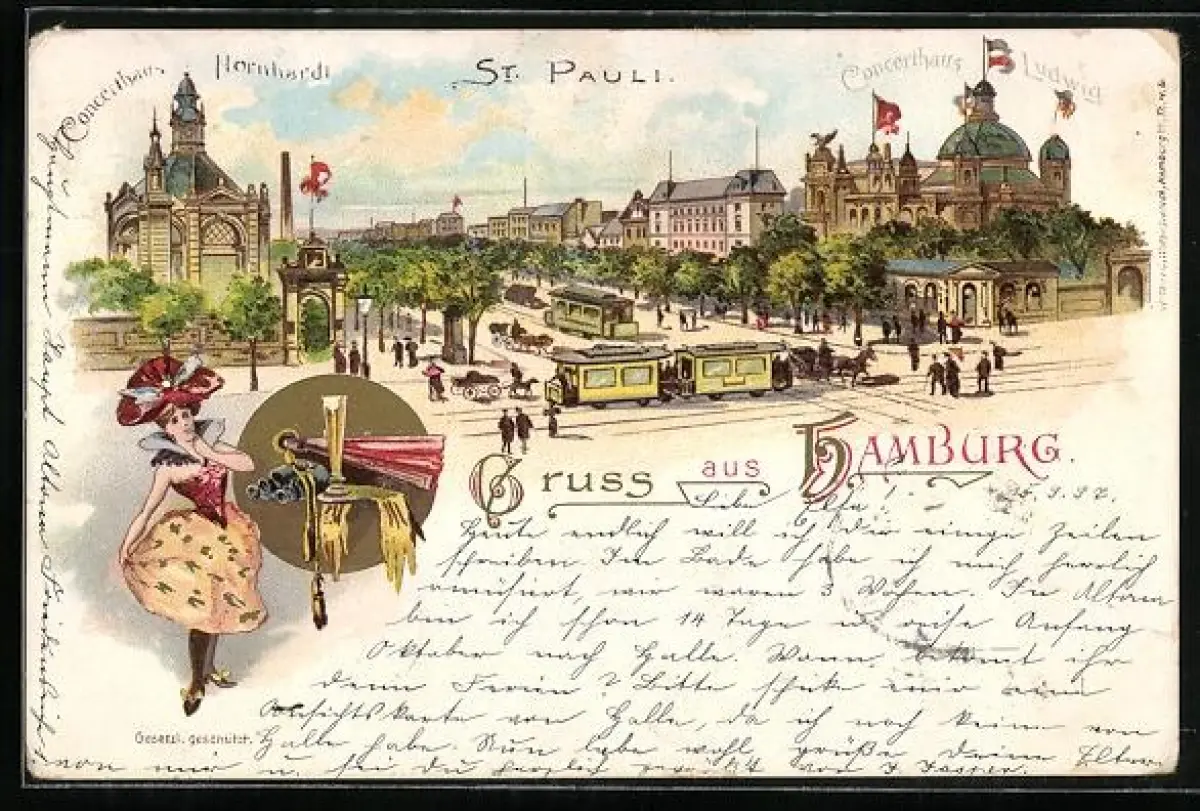 Concerthaus Hornhardt
ST. PAULI.
Concerthaus Ludwig
Gruss aus HAMBURG.
Liebe 9.97.
Heute endlich will ich Dir einige Zeilen
schreiben. Im Bade habe ich mich herrlich
amüsirt, wir waren 3 Wochen. In Altona
bin ich schon 14 Tage u. reise Anfang
Oktober nach Halle. Wann bekomt ihr
denn Ferien? Bitte schicke mir eine
Ansichtskarte von Halle, da ich noch keine von
Halle habe. Nun lebe wohl, grüße Deine Eltern
von mir u. sei Du herzlich gegrüßt von
Gesetzl. geschützt.
Altona